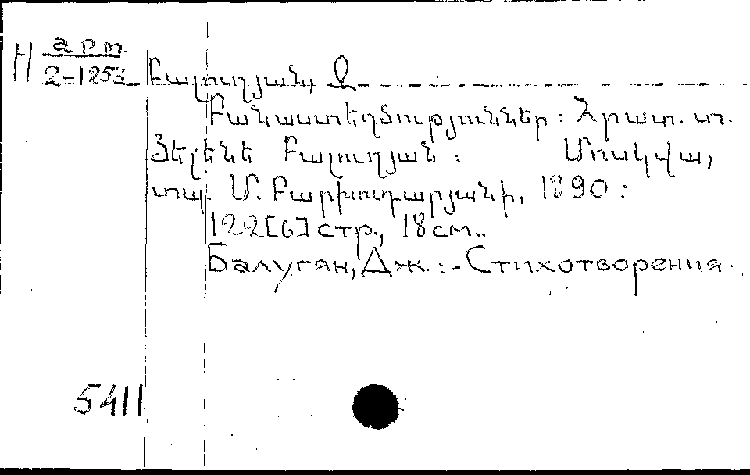 Н арт
2-1253
Բալուղյան, Ջ.
Բանաստեղծություններ: Հրատ. տ.
Հելենե Բալուղյան: Մոսկվա,
տպ. Մ. Բարխուդարյանի, 1890:
122[6] стр., 18 см..
Балугян, Дж.:- Стихотворения.
5411